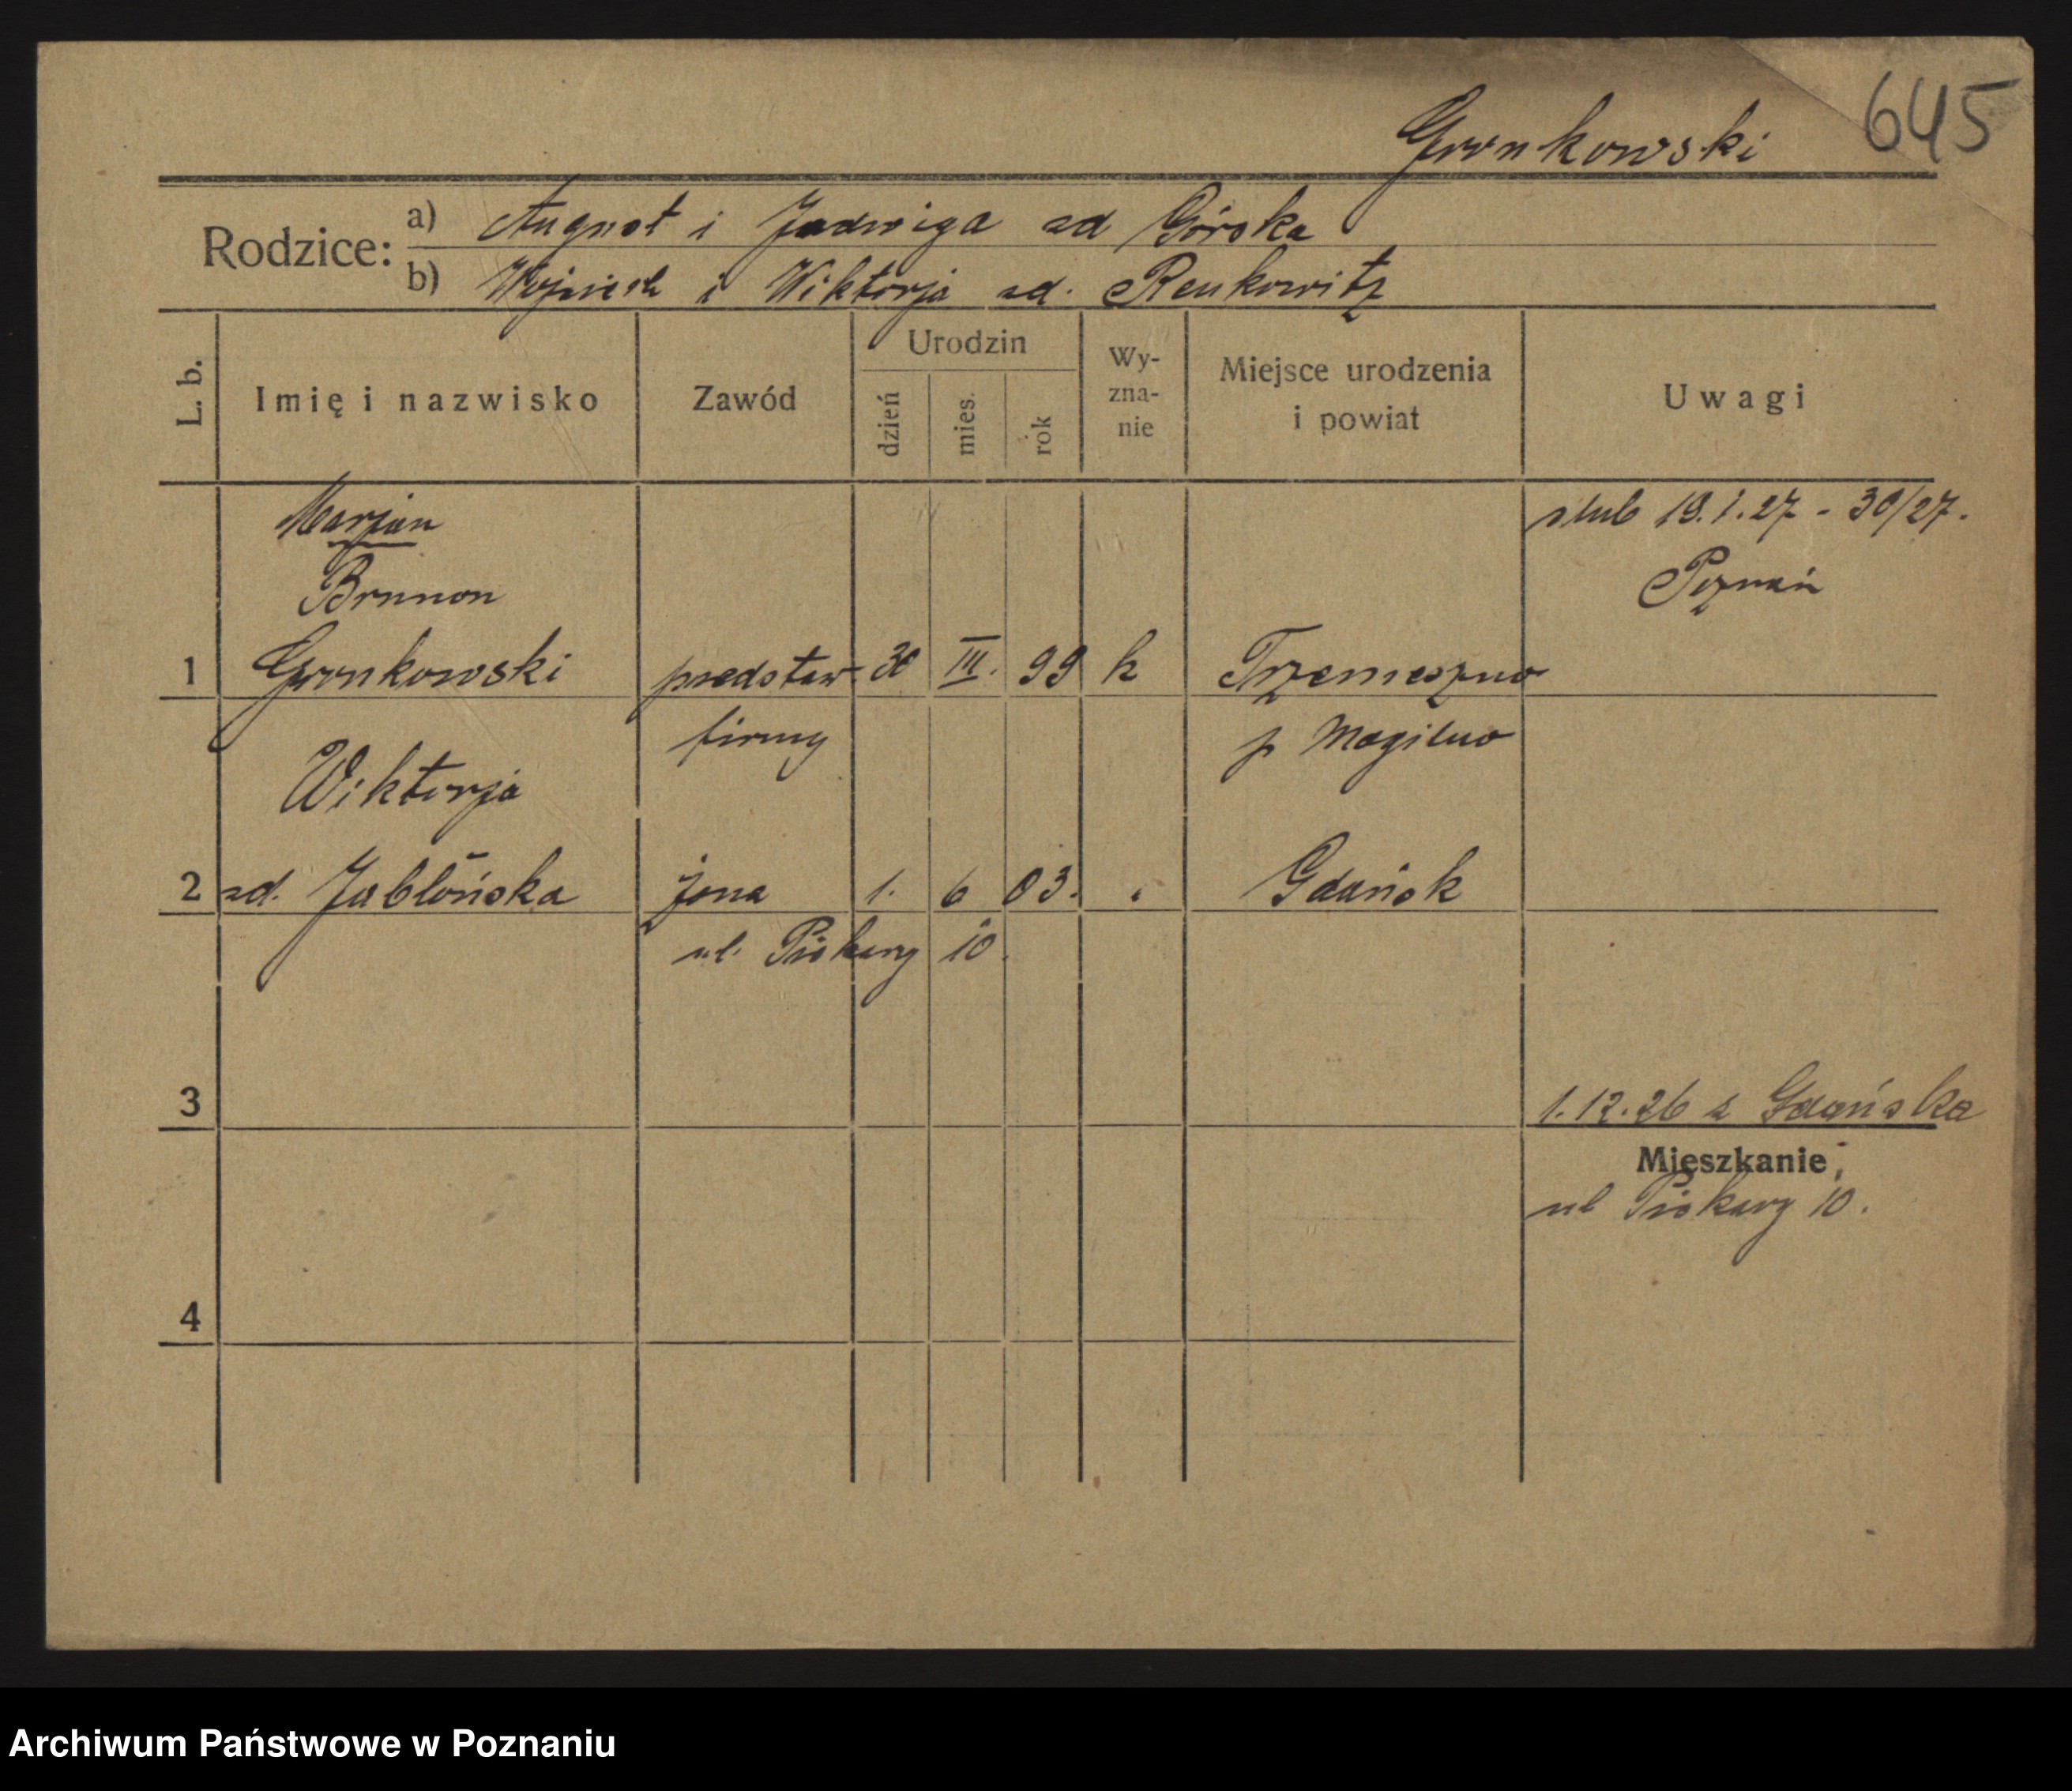 645
Gronkowski
Rodzice:
a) August i Jadwiga zd Górska
b) Wojciech i Wiktorja zd. Renkowitz
L. b.
Imię i nazwisko
Zawód
Urodzin
dzień
mies.
rok
Wy-
zna-
nie
Miejsce urodzenia
i powiat
Uwagi
Marjan
Brunon
1 Gronkowski przedstaw 30 III. 99 k Trzemeszno
firmy p Mogilno
ślub 19.1.27 - 30/27.
Poznań
Wiktorja
2 zd. Jabłońska żona 1. 6 03. " Gdańsk
ul. Piekary 10.
3
1.12.26 z Gdańska
Mieszkanie
ul Piekary 10.
4
Archiwum Państwowe w Poznaniu